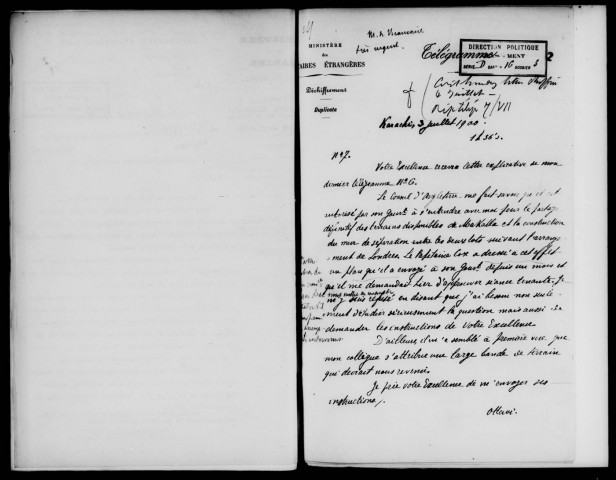 très urgent
MINISTÈRE
DES
AFFAIRES ÉTRANGÈRES
Déchiffrement
Duplicata
Télégramme
DIRECTION POLITIQUE
4 Juillet
Karachi, 3 juillet 1900
1h 35 s.
No 7.
Votre Excellence recevra lettre explicative de mon
dernier télégramme No 6.
Le Consul d'Angleterre me fait savoir qu'il est
autorisé par son Gouvt. à s'entendre avec moi pour le partage
définitif des terrains disponibles de Makalla et la construction
du mur de séparation entre les deux lots suivant l'arrange-
ment de Londres. Le Capitaine Cox a dressé à cet effet
un plan qu'il a envoyé à son Gouvt. depuis un mois et
qu'il me demandait hier d'approuver séance tenante. Je
m'y suis refusé en disant que j'ai besoin non seule-
ment d'étudier sérieusement la question mais aussi de
demander les instructions de Votre Excellence.
D'ailleurs il m'a semblé à première vue que
mon collègue s'attribue une large bande de terrain
qui devrait nous revenir.
Je prie Votre Excellence de m'envoyer ses
instructions.
Ottavi.